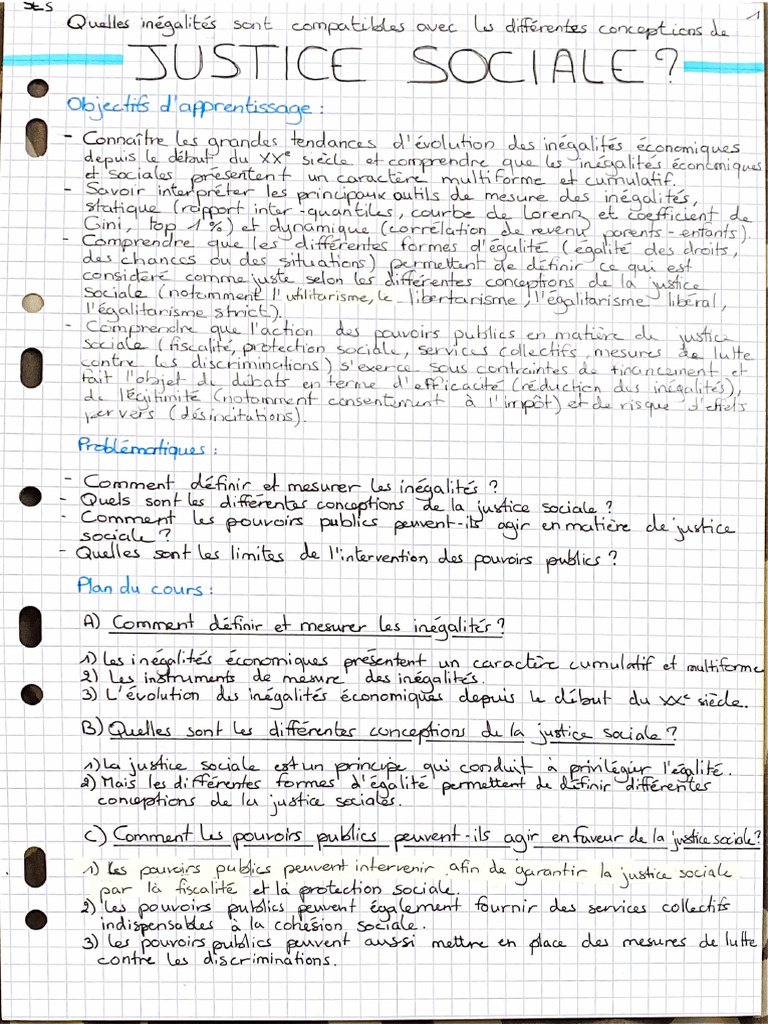 SES
1
Quelles inégalités sont compatibles avec les différentes conceptions de
JUSTICE SOCIALE ?
Objectifs d'apprentissage :
- Connaître les grandes tendances d'évolution des inégalités économiques
depuis le début du XXe siècle et comprendre que les inégalités économiques
et sociales présentent un caractère multiforme et cumulatif.
- Savoir interpréter les principaux outils de mesure des inégalités,
statique (rapport inter-quantiles, courbe de Lorenz et coefficient de
Gini, top 1%) et dynamique (corrélation de revenu parents-enfants).
- Comprendre que les différentes formes d'égalité (égalité des droits,
des chances ou des situations) permettent de définir ce qui est
considéré comme juste selon les différentes conceptions de la justice
sociale (notamment l'utilitarisme, le libertarisme, l'égalitarisme libéral,
l'égalitarisme strict).
- Comprendre que l'action des pouvoirs publics en matière de justice
sociale (fiscalité, protection sociale, services collectifs, mesures de lutte
contre les discriminations) s'exerce sous contraintes de financement et
fait l'objet de débats en terme d'efficacité (réduction des inégalités),
de légitimité (notamment consentement à l'impôt) et de risque d'effets
pervers (désincitations).
Problématiques :
- Comment définir et mesurer les inégalités ?
- Quels sont les différentes conceptions de la justice sociale ?
- Comment les pouvoirs publics peuvent-ils agir en matière de justice
sociale ?
- Quelles sont les limites de l'intervention des pouvoirs publics ?
Plan du cours :
A) Comment définir et mesurer les inégalités ?
1) Les inégalités économiques présentent un caractère cumulatif et multiforme
2) Les instruments de mesure des inégalités.
3) L'évolution des inégalités économiques depuis le début du XXe siècle.
B) Quelles sont les différentes conceptions de la justice sociale ?
1) La justice sociale est un principe qui conduit à privilégier l'égalité.
2) Mais les différentes formes d'égalité permettent de définir différentes
conceptions de la justice sociales.
C) Comment les pouvoirs publics peuvent-ils agir en faveur de la justice sociale ?
1) Les pouvoirs publics peuvent intervenir afin de garantir la justice sociale
par la fiscalité et la protection sociale.
2) Les pouvoirs publics peuvent également fournir des services collectifs
indispensables à la cohésion sociale.
3) Les pouvoirs publics peuvent aussi mettre en place des mesures de lutte
contre les discriminations.